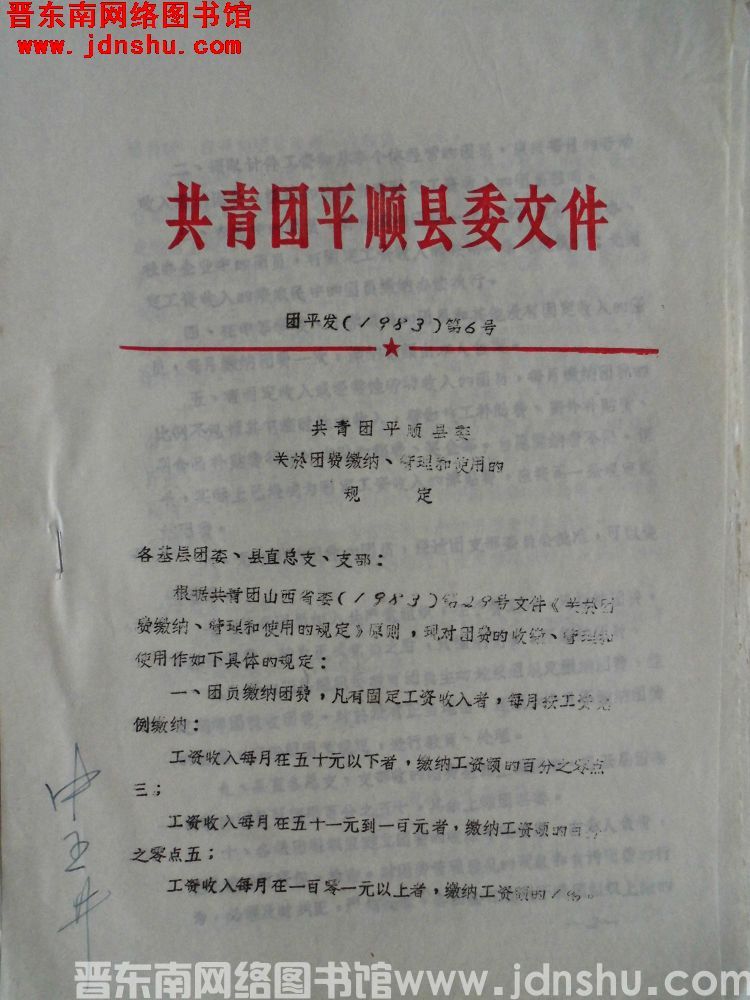 晋东南网络图书馆
www.jdnshu.com
共青团平顺县委文件
团平发(1983)第6号
共青团平顺县委
关於团费缴纳、管理和使用的
规 定
各基层团委、县直总支、支部：
根据共青团山西省委(1983)第29号文件《关於团
费缴纳、管理和使用的规定》原则，现对团费的收缴、管理和
使用作如下具体的规定：
一、团员缴纳团费，凡有固定工资收入者，每月按工资比
例缴纳：
工资收入每月在五十元以下者，缴纳工资额的百分之零点
三；
工资收入每月在五十一元到一百元者，缴纳工资额的百分
之零点五；
工资收入每月在一百零一元以上者，缴纳工资额的1%。
中五井
晋东南网络图书馆www.jdnshu.com